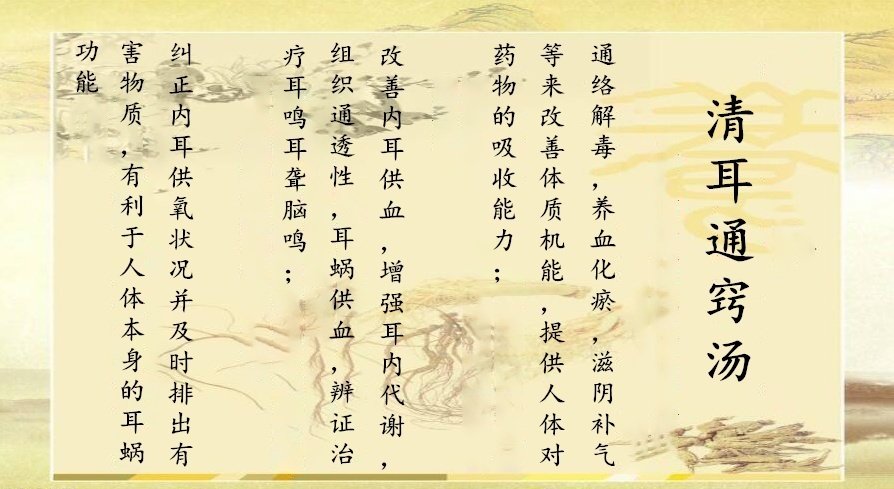 清耳通窍汤
通络解毒，养血化瘀，滋阴补气
等来改善体质机能，提供人体对
药物的吸收能力；
改善内耳供血，增强耳内代谢，
组织通透性，耳蜗供血，辨证治
疗耳鸣耳聋脑鸣；
纠正内耳供氧状况并及时排出有
害物质，有利于人体本身的耳蜗
功能